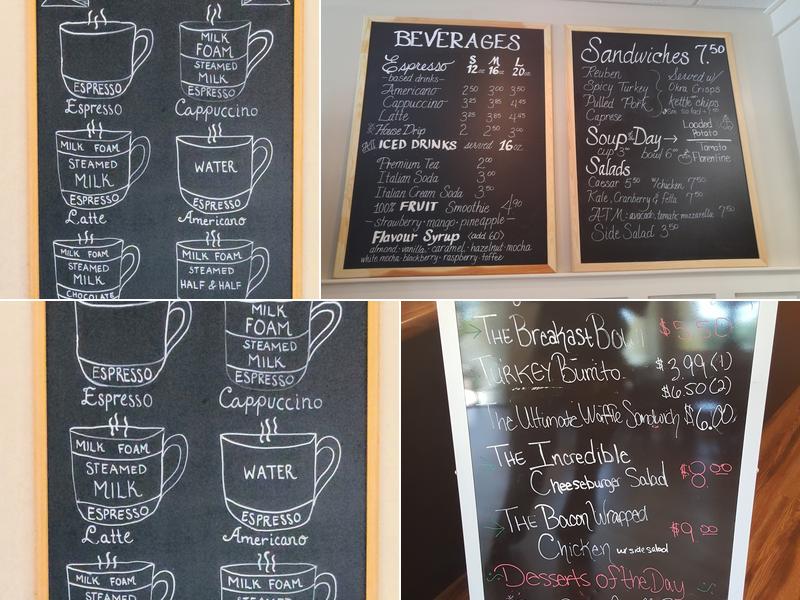 ESPRESSO
Espresso
MILK
FOAM
STEAMED
MILK
ESPRESSO
Cappuccino
MILK FOAM
STEAMED
MILK
ESPRESSO
Latte
WATER
ESPRESSO
Americano
MILK FOAM
STEAMED
MILK
CHOCOLATE
MILK FOAM
STEAMED
HALF & HALF
BEVERAGES
Espresso S M L
-based drinks- 12oz 16oz 20oz
Americano 2.50 3.00 3.50
Cappuccino 3.25 3.85 4.45
Latte 3.25 3.85 4.45
House Drip 2 2.50 3.00
ICED DRINKS served 16oz
Premium Tea 2.00
Italian Soda 3.00
Italian Cream Soda 3.50
100% FRUIT Smoothie 4.90
-strawberry·mango·pineapple-
Flavour Syrup (add 60)
almond·vanilla·caramel·hazelnut·mocha
white mocha·blackberry·raspberry·toffee
Sandwiches 7.50
Reuben
Spicy Turkey
Pulled Pork
Caprese
Served w/
Okra Crisps
Kettle chips
Soup of Day → Loaded Potato
cup 3 bowl 6 Tomato Florentine
Salads
Caesar 5.50 w/chicken 7.50
Kale, Cranberry & Feta 7.50
A.T.M: avocado, tomato, mozzarella 7.50
Side Salad 3.50
MILK
FOAM
STEAMED
MILK
ESPRESSO
Cappuccino
ESPRESSO
Espresso
MILK FOAM
STEAMED
MILK
ESPRESSO
Latte
WATER
ESPRESSO
Americano
MILK FOAM
STEAMED
MILK FOAM
STEAMED
THE Breakfast Bowl $5.50
TURKEY Burrito $3.99 (1)
$6.50 (2)
The Ultimate Waffle Sandwich $6.00
THE Incredible
Cheeseburger Salad $8.00
THE Bacon Wrapped
Chicken w/ side salad $9.00
Desserts of the Day